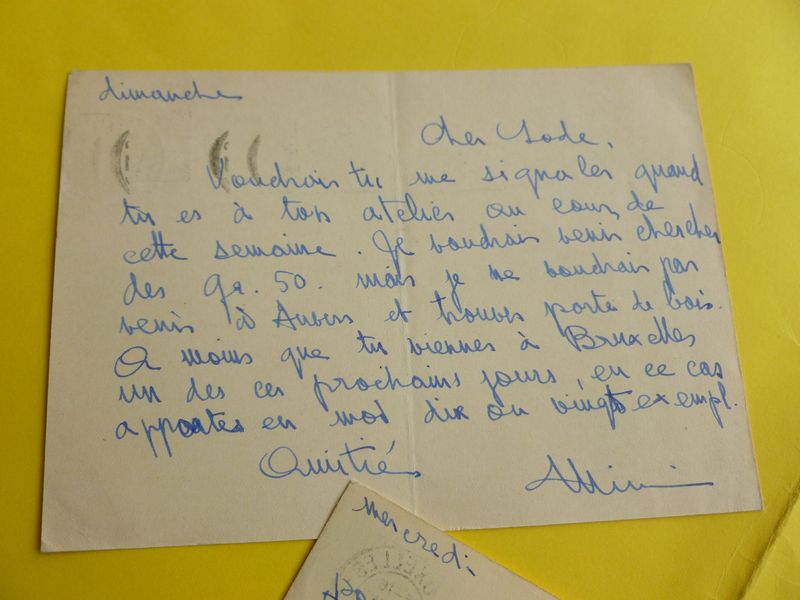 dimanche
Cher Jode,
Voudrais tu me signaler quand
tu es à ton atelier au cours de
cette semaine. Je voudrais venir chercher
des Ga. 50. mais je ne voudrais pas
venir à Anvers et trouver porte de bois.
A moins que tu viennes à Bruxelles
un des ces prochains jours, en ce cas
apportes en moi dix ou vingt exempl.
Amitiés
Mercredi